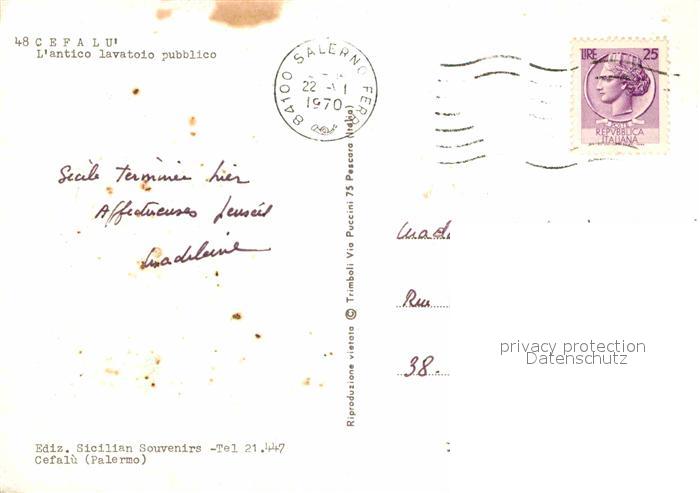 48 CEFALU'
L'antico lavatoio pubblico
84100 SALERNO FERR
22
1970
LIRE 25
POSTE
REPVBBLICA
ITALIANA
Sicile terminée hier
Affectueuses pensées
Madeleine
Riproduzione vietata © Trimboli Via Puccini 75 Pescara (Italia)
Mad.
Rue
38.
privacy protection
Datenschutz
Ediz. Sicilian Souvenirs -Tel 21.447
Cefalù (Palermo)